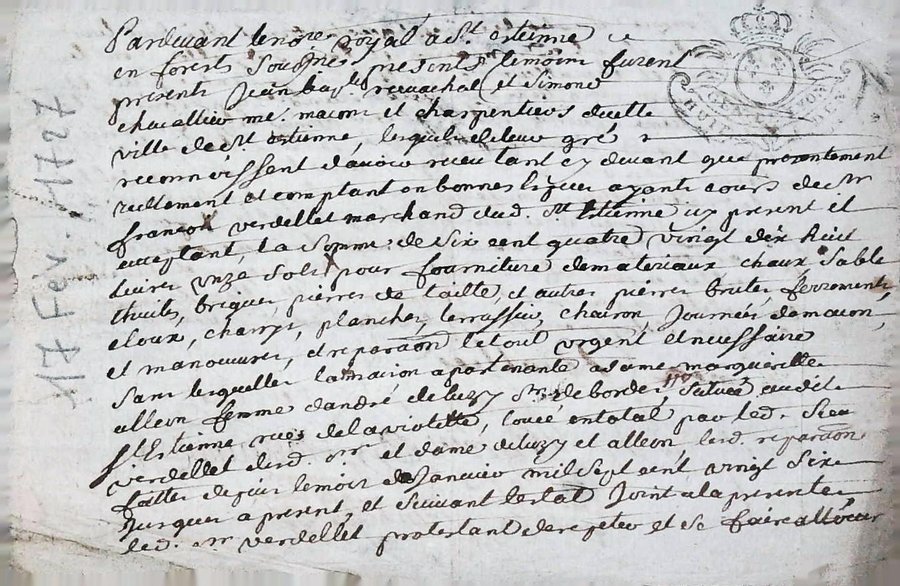 Pardevant le no.re royal a St. estienne ce
en forests Soubsignés presents temoins furent
presents Jean bap.te revachol et Simone
chavallier me. macons et charpentiers de cette
ville de St estienne, lesquels de leur gré
reconnoissent d'avoir receu tant cy devant que presentement
reellement et comptant en bonnes especes ayants cours de Sr
francois verdellet marchand dud. St. Estienne icy present et
acceptant, la somme de six cent quatre vingt dix huit
livres unze sols pour fourniture de materiaux, chaux, sable
thuiles, briques, pierres de taille, et autres pierres brutes, ferrements
cloux, charges, planches, terrasseur, chairon, Journées de macon,
et manoeuvres, et reparaon le tout urgent et necessaire
sans lesquelles la maison apartenante a dame marguerite
alleon femme d'andré de luzy Sr. de bordes, Scituée audit
St Estienne rue de la violette, loué en total par led. Sieur
verdellet desd. Sr et dame de luzy et alleon, lesd. reparaon
faites depuis le mois de Janvier mil sept cent vingt six
Jusques a present, et suivant lestat Joint a la presente,
led. Sr verdellet protestant de repeter et se faire allouer
17 Fév. 1727
HUIT
GEN